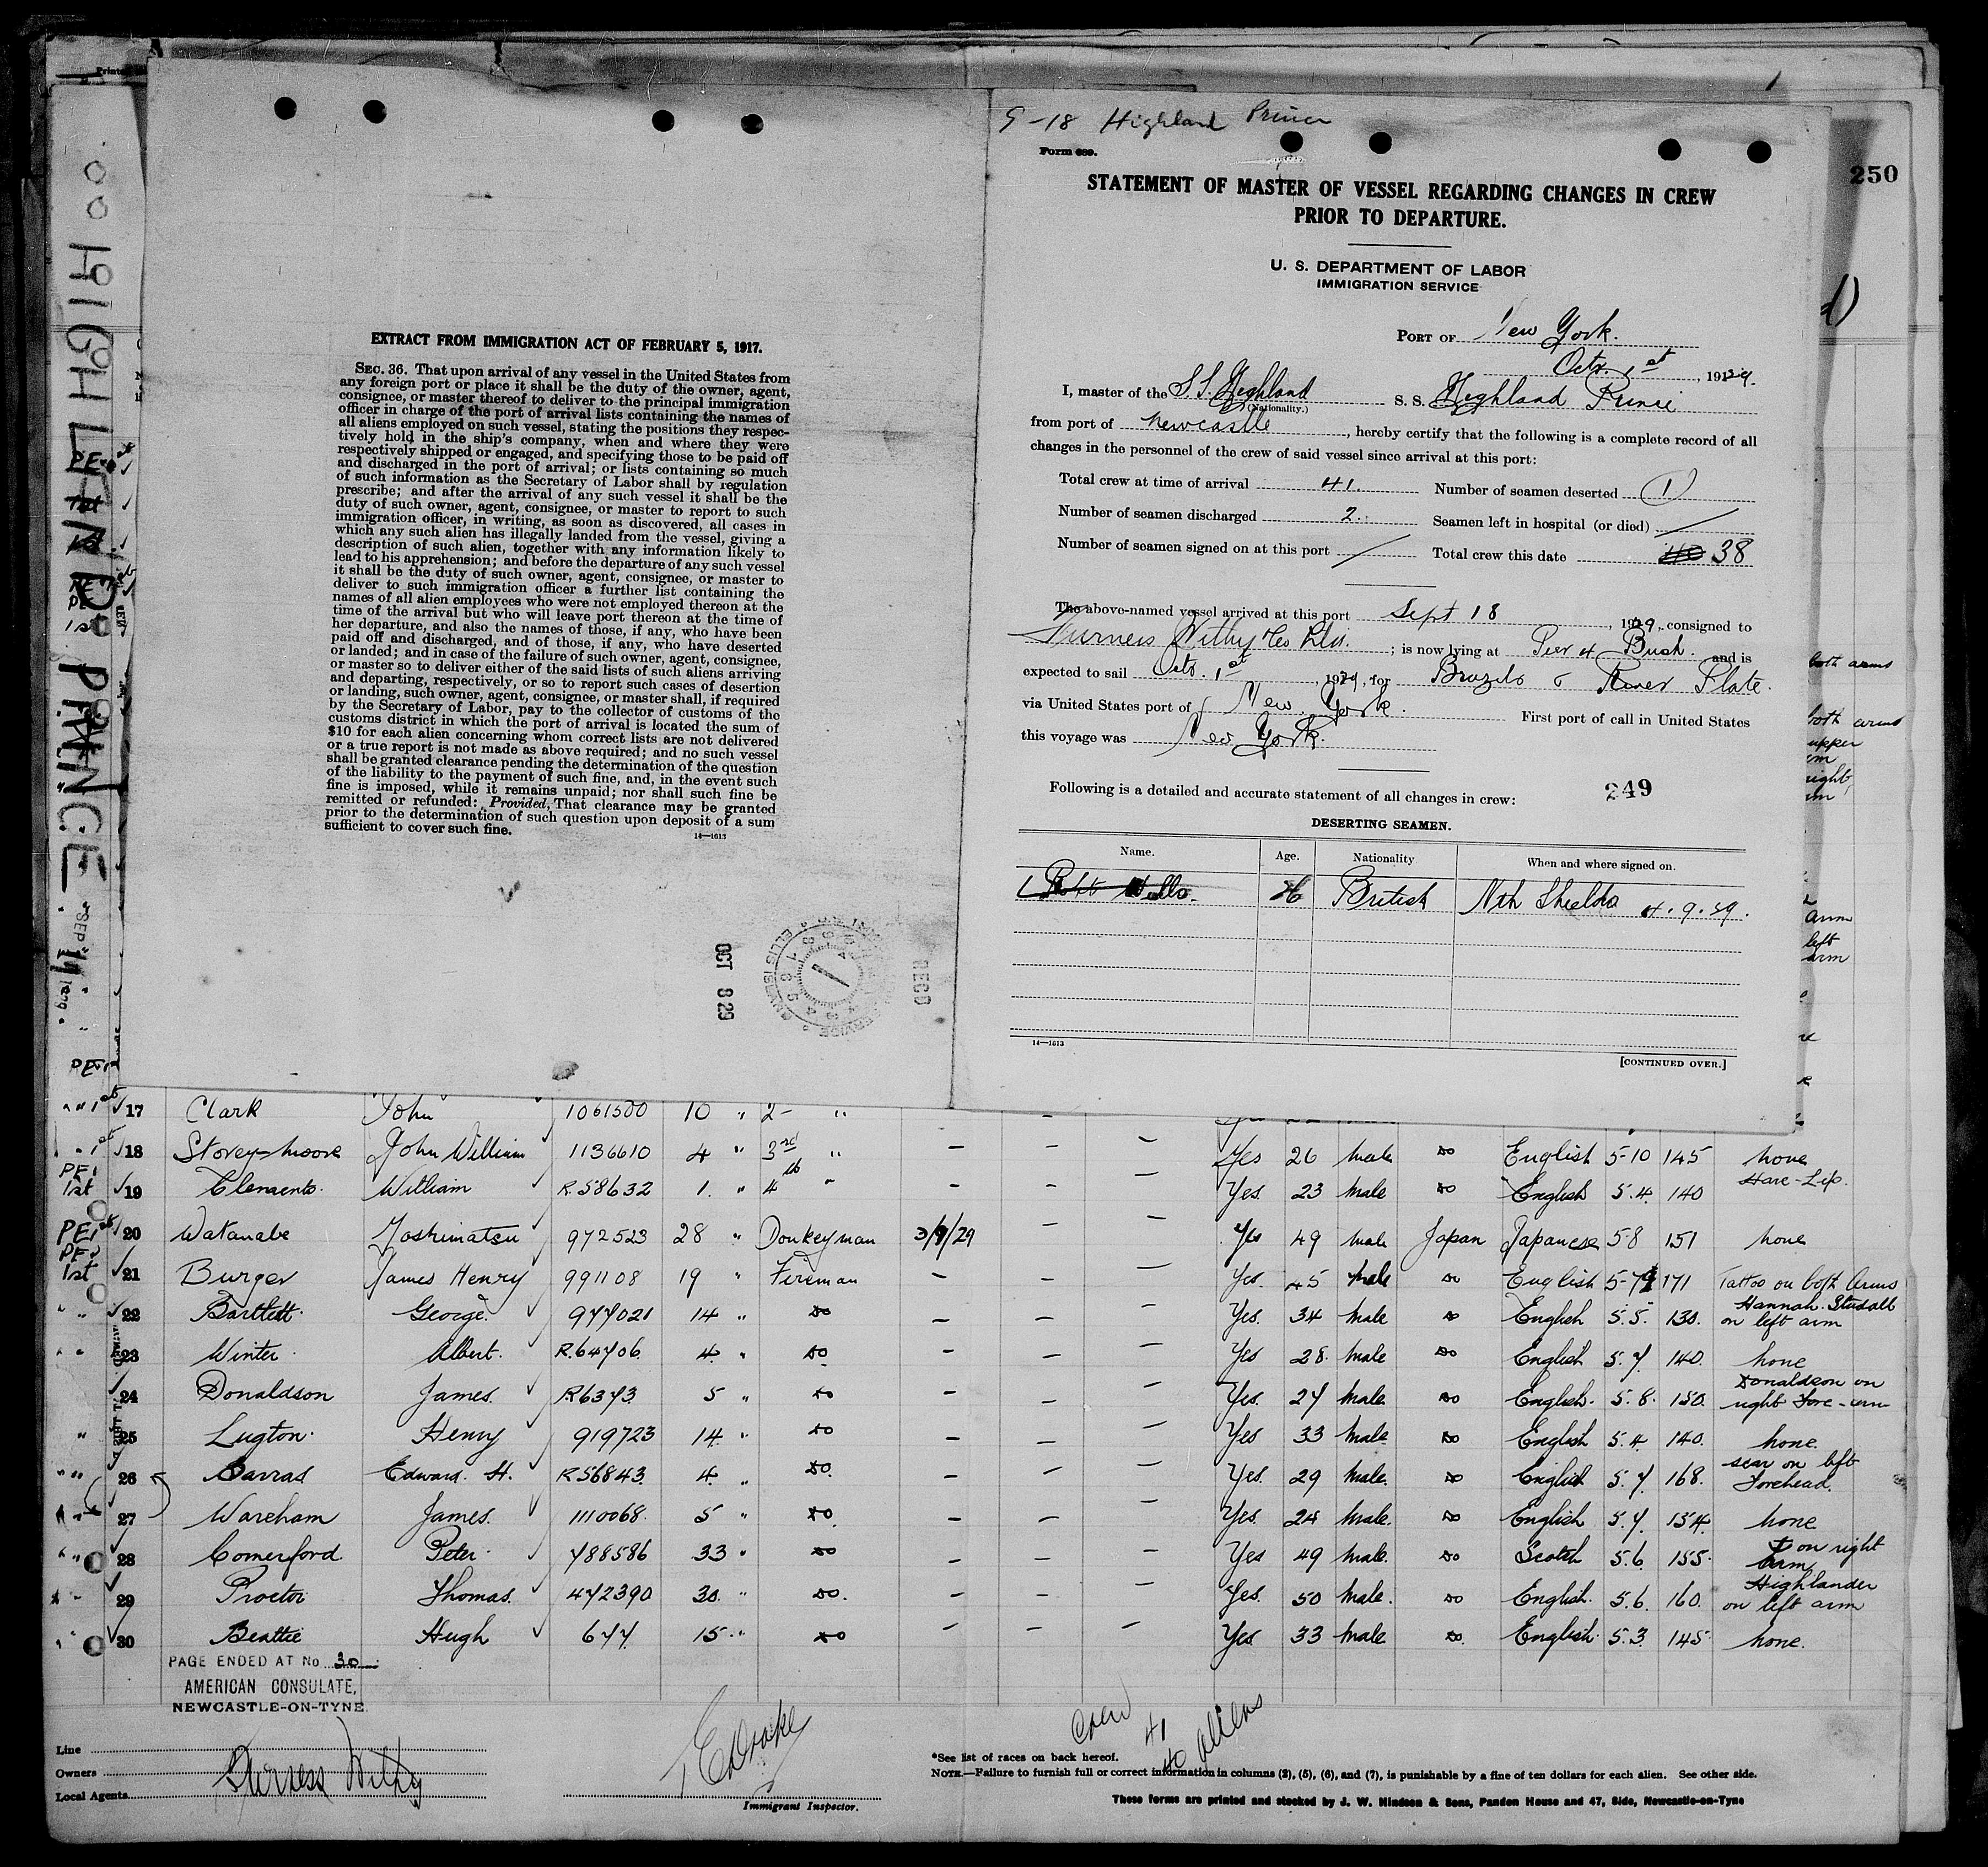 250
HIGHLAND PRINCE
EXTRACT FROM IMMIGRATION ACT OF FEBRUARY 5, 1917.
SEC. 36. That upon arrival of any vessel in the United States from
any foreign port or place it shall be the duty of the owner, agent,
consignee, or master thereof to deliver to the principal immigration
officer in charge of the port of arrival lists containing the names of
all aliens employed on such vessel, stating the positions they respec-
tively hold in the ship's company, when and where they were
respectively shipped or engaged, and specifying those to be paid off
and discharged in the port of arrival; or lists containing so much
of such information as the Secretary of Labor shall by regulation
prescribe; and after the arrival of any such vessel it shall be the
duty of such owner, agent, consignee, or master to report to such
immigration officer, in writing, as soon as discovered, all cases in
which any such alien has illegally landed from the vessel, giving a
description of such alien, together with any information likely to
lead to his apprehension; and before the departure of any such vessel
it shall be the duty of such owner, agent, consignee, or master to
deliver to such immigration officer a further list containing the
names of all alien employees who were not employed thereon at the
time of the arrival but who will leave port thereon at the time of
her departure, and also the names of those, if any, who have been
paid off and discharged, and of those, if any, who have deserted
or landed; and in case of the failure of such owner, agent, consignee,
or master so to deliver either of the said lists of such aliens arriving
and departing, respectively, or so to report such cases of desertion
or landing, such owner, agent, consignee, or master shall, if required
by the Secretary of Labor, pay to the collector of customs of the
customs district in which the port of arrival is located the sum of
$10 for each alien concerning whom correct lists are not delivered
or a true report is not made as above required; and no such vessel
shall be granted clearance pending the determination of the question
of the liability to the payment of such fine, and, in the event such
fine is imposed, while it remains unpaid; nor shall such fine be
remitted or refunded: Provided, That clearance may be granted
prior to the determination of such question upon deposit of a sum
sufficient to cover such fine.
14—1613
OCT 8 29
RECD
9-18 Highland Prince
Form 689.
STATEMENT OF MASTER OF VESSEL REGARDING CHANGES IN CREW
PRIOR TO DEPARTURE.
U. S. DEPARTMENT OF LABOR
IMMIGRATION SERVICE
PORT OF New York.
Octr. 1st, 1929.
I, master of the S.S. Highland S. S. Highland Prince
(Nationality.)
from port of Newcastle, hereby certify that the following is a complete record of all
changes in the personnel of the crew of said vessel since arrival at this port:
Total crew at time of arrival 41. Number of seamen deserted (1)
Number of seamen discharged 2. Seamen left in hospital (or died) /
Number of seamen signed on at this port / Total crew this date 40 38
The above-named vessel arrived at this port Sept 18, 1929, consigned to
Furness Withy & Co Ltd.; is now lying at Pier 4 Bush. and is
expected to sail Octr. 1st 1929, for Brazils & River Plate.
via United States port of New York. First port of call in United States
this voyage was New York.
Following is a detailed and accurate statement of all changes in crew: 249
DESERTING SEAMEN.
Name. Age. Nationality When and where signed on.
1 Robt Wells. 26 British Nth Shields 4.9.29.
14—1613
[CONTINUED OVER.]
17 Clark John 1061500 10 " 2 "
18 Storey-Moore John William 1136610 4 " 3rd " — — — Yes 26 Male do English 5-10 145 none
19 Clements. William R.58632 1. " 4th " — — — Yes. 23 Male do English 5.4. 140 Hare-Lip.
20 Watanabe Yoshimatsu 972523 28 " Donkeyman 3/9/29 — — Yes 49 Male Japan Japanese 5-8 151 none
21 Burger James Henry 991108 19 " Fireman — — — Yes. 45 Male do English 5-7½ 171 Tattoo on both Arms
22 Bartlett. George. 977021 14 " do — — — Yes. 34 Male do English 5.5. 130. Hannah. Studall on left arm
23 Winter. Albert. R.64706. 4. " do — — — Yes 28. Male do English 5.7. 140. none
24 Donaldson James. R6373. 5 " do — — — Yes. 27 Male. do English. 5.8. 150. Donaldson on right Fore-arm
25 Lugton. Henry 919723 14. " do — — — Yes 33 Male do English 5.4 140. none.
26 Barras Edward. H. R56843. 4. " do. — — — Yes. 29 Male. do English 5.7. 168. scar on left Forehead.
27 Wareham James. 1110068. 5 " do. — — — Yes. 24 Male. do English 5.7. 154. none
28 Comerford Peter. 788586 33 " do — — — Yes 49 Male. do Scotch 5.6. 155. on right arm
29 Proctor Thomas. 472390 30. " do. — — — Yes. 50 Male. do English. 5.6. 160. Highlander on left arm
30 Beattie Hugh 677. 15 " do — — — Yes. 33 Male do. English. 5.3. 145. none.
PAGE ENDED AT No 30
AMERICAN CONSULATE,
NEWCASTLE-ON-TYNE.
Crew 41
40 aliens
Line
Owners
Local Agents
Furness Withy
Immigrant Inspector.
*See list of races on back hereof.
NOTE.—Failure to furnish full or correct information in columns (2), (5), (6), and (7), is punishable by a fine of ten dollars for each alien. See other side.
These forms are printed and stocked by J. W. Hindson & Sons, Pandon House and 47, Side, Newcastle-on-Tyne